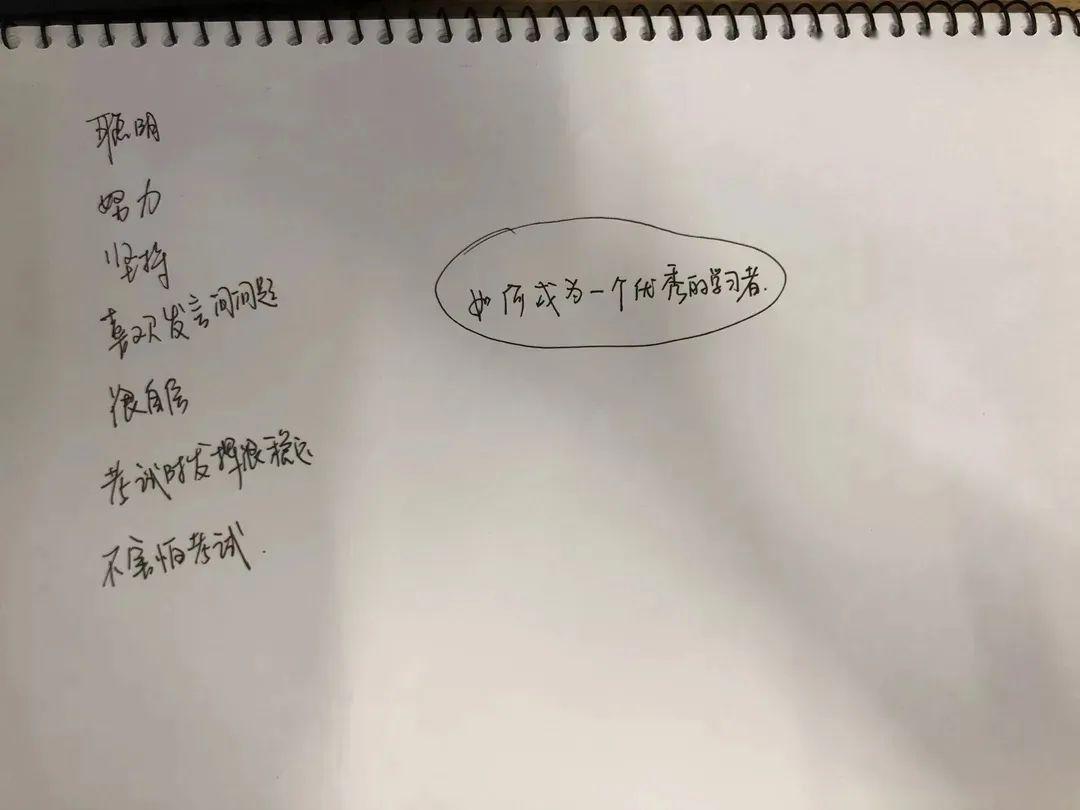 聪明
努力
坚持
喜欢发言问问题
很自信
考试时发挥很稳定
不害怕考试.
如何成为一个优秀的学习者.